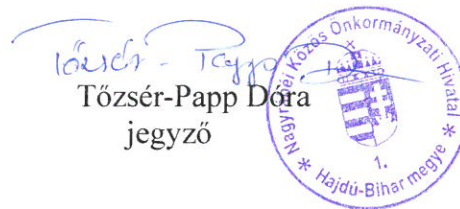 Tőzsér-Papp Dóra
jegyző
Nagyrábéi Közös Önkormányzati Hivatal
1.
* Hajdú-Bihar megye *